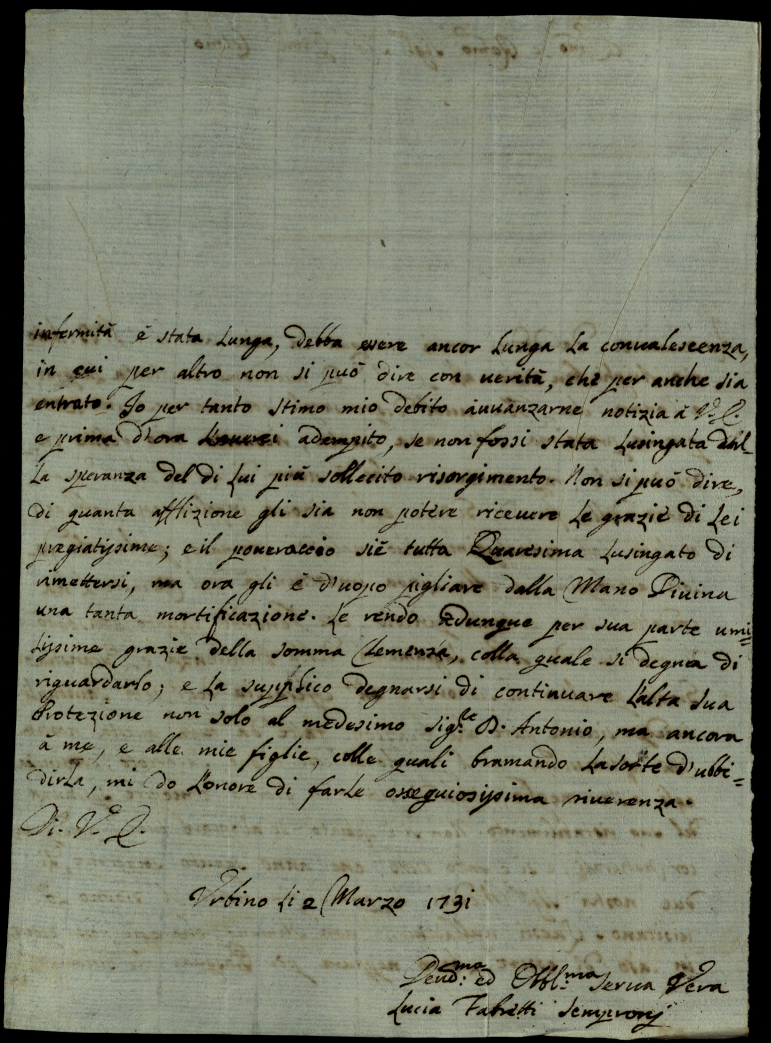 infermità è stata lunga, debba essere ancor lunga la conualescenza,
in cui per altro non si può dire con uerità, che per anche sia
entrato. Io per tanto stimo mio debito auuanzarne notizia à V.E.
e prima d'ora l'auerei adempito, se non fossi stata lusingata dal
la speranza del di lui più sollecito risorgimento. Non si può dire,
di quanta afflizione gli sia non potere riceuere le grazie di Lei
pregiatissime; e il poueraccio siè tutta Quaresima lusingato di
rimettersi, ma ora gli è d'uopo pigliare dalla Mano Diuina
una tanta mortificazione. Le rendo adunque per sua parte umi=
lissime grazie della somma Clemenza, colla quale si degna di
riguardarlo; e la supplico degnarsi di continuare l'alta sua
Protezione non solo al medesimo sig.re D. Antonio, ma ancora
à me, e alle mie figlie, colle quali bramando la sorte d'ubbi=
dirla, mi do l'onore di farle ossequiosissima riuerenza.
Di V.E.
Vrbino li 2 Marzo 1731
Deuo.ma ed Obbl.ma Serua Vera
Lucia Fabretti Sempronj